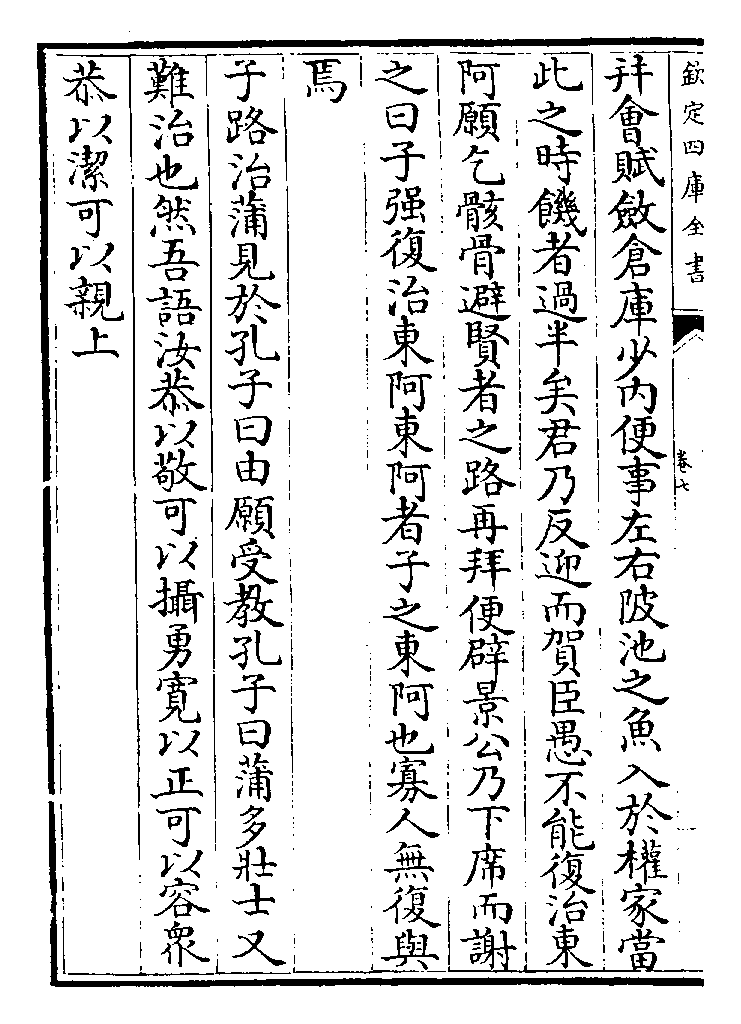 欽定四庫全書
卷七
并會賦斂倉庫少内便事左右陂池之魚入於權家當
此之時饑者過半矣君乃反迎而賀臣愚不能復治東
阿願乞骸骨避賢者之路再拜便辟景公乃下席而謝
之曰子强復治東阿東阿者子之東阿也寡人無復與
焉
子路治蒲見於孔子曰由願受教孔子曰蒲多壯士又
難治也然吾語汝恭以敬可以攝勇寛以正可以容衆
恭以潔可以親上